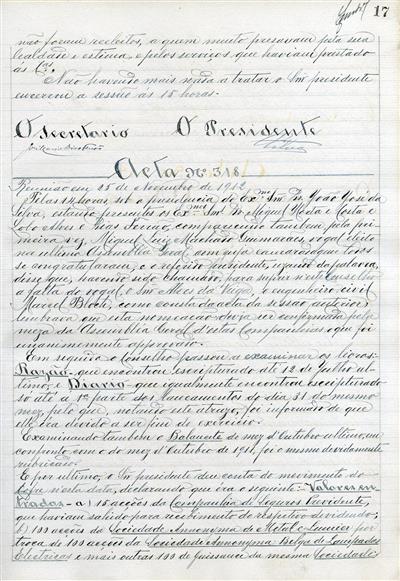 17
não foram reeleitos, a quem muito presavam pela sua
lealdade e estima e pelos serviços que haviam prestado
às Cas.
Não havendo mais nada a tratar o Snr presidente
encerrou a sessão ás 15 horas.
O Secretario O Presidente
Acta Nº 318
Reunião em 25 de Novembro de 1912
Pelas 14 horas, sob a presidencia do Exmo Snr Dr João José da
Silva, estando presentes os Exmos Snrs Dr Miguel Horta e Costa e
Lobo Alves e Dias Serrão, compareceu tambem pela pri-
meira vez, Miguel Luiz Machado Guimarães, vogal eleito
na ultima Assembleia Geral, com cuja camaradagem todos
se congratularam, e o referido presidente, usando da palavra,
disse que, havendo sido
a falta de vogal o engenheiro civil
Marcel Bloch, como consta da acta da sessão anterior,
lembrava que esta nomeação devia ser confirmada pela
meza da Assembleia Geral d'estas Companhias o que foi
unanimemente approvado.
Em seguida o Conselho passou a examinar os livros:
Razão - que encontrou escripturado até 12 de Julho ul-
timo, e Diario - que igualmente encontrou escripturado
só até a 1ª parte dos lançamentos do dia 31 do mesmo
mez, pelo que, notando este atrazo, foi informado de que
elle era devido a ser fim de exercicio.
Examinando tambem o Balancete do mez d'Outubro ultimo, em
confronto com o do mez d'Outubro de 1911, foi o mesmo devidamente
rubricado.
E por ultimo, o Snr presidente deu conta do movimento do
cofre nesta data, declarando que era o seguinte: Valores en-
trados - a) 15 acções da Companhia de Seguros Providente,
que haviam sahido para recebimento do respectivo dividendo;
b) 100 acções da Sociedade Annonyma de Metal e Lumier por
troca de 100 acções da Sociedade Annonyma Belga de Lampadas
Electricas e mais outras 100 de jouissance da mesma Sociedade;